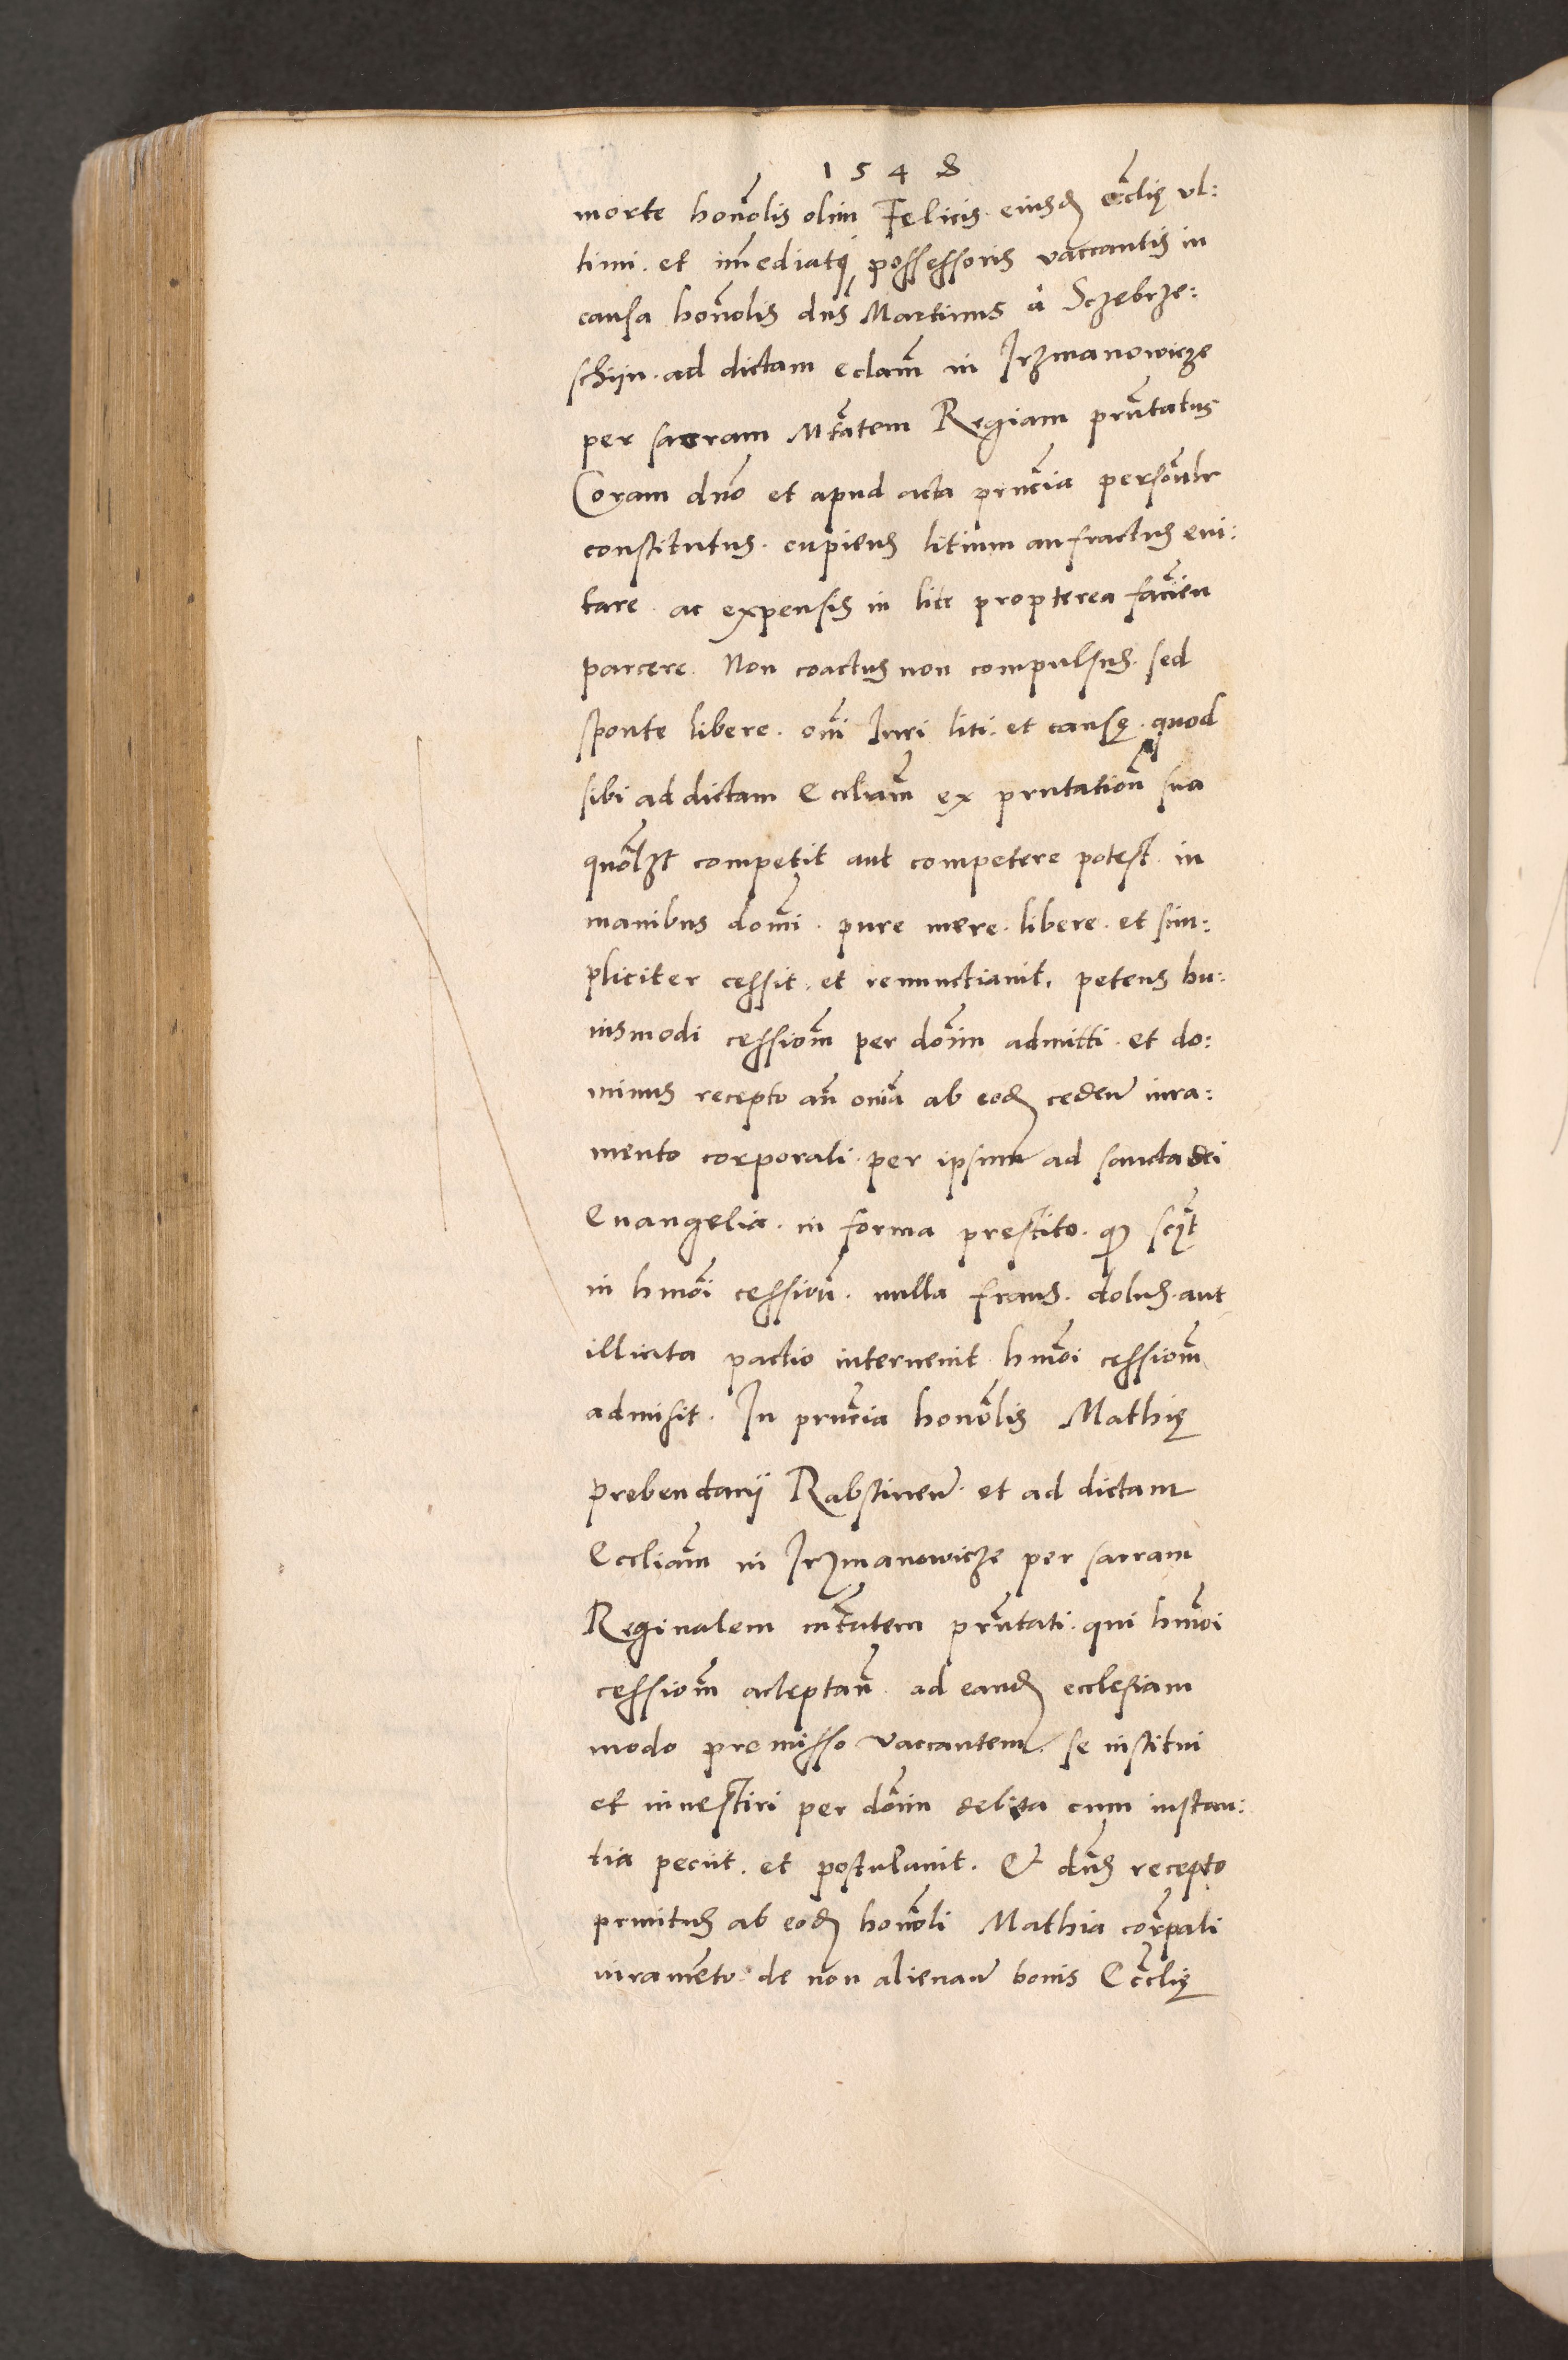 1548
morte honolis olim Felicis eiusd ecclię vl:
timi et imediati possessoris vaccantis in
causa honolis dns Martinus a Sczebrze:
schijn ad dictam eclam in Irzmanowicze
per sacram Mtatem Regiam prntatus
Coram dno et apud acta prncia personlr
constitutus cupiens litium anfractus eui:
tare ac expensis in lite propterea facien
parcere. Non coactus non compulsus sed
sponte libere omi Iuri liti et causę quod
sibi ad dictam Eccliam ex prntation sua
quolzt competit aut competere potest in
manibus domi pure mere libere et sim:
pliciter cessit et renunctiauit, petens hu:
iusmodi cessiom per domin admitti et do:
minus recepto an omia ab eod ceden iura:
mento corporali per ipsum ad sancta dei
Euangelia in forma prestito qz scijt
in hmoi cession nulla fraus dolus aut
illicita pactio interuenit hmoi cessiom
admisit. In prncia honolis Mathię
prebendarij Rabstinen et ad dictam
Eccliam in Irzmanowicze per sacram
Reginalem mtatem prntati qui hmoi
cessiom acceptan ad eand ecclesiam
modo premisso vaccantem se institui
et inuestiri per domin debita cum instan:
tia peciit et postulauit. Et dns recepto
prmitus ab eod honoli Mathia corpali
iuramento de non alienan bonis Ecclię